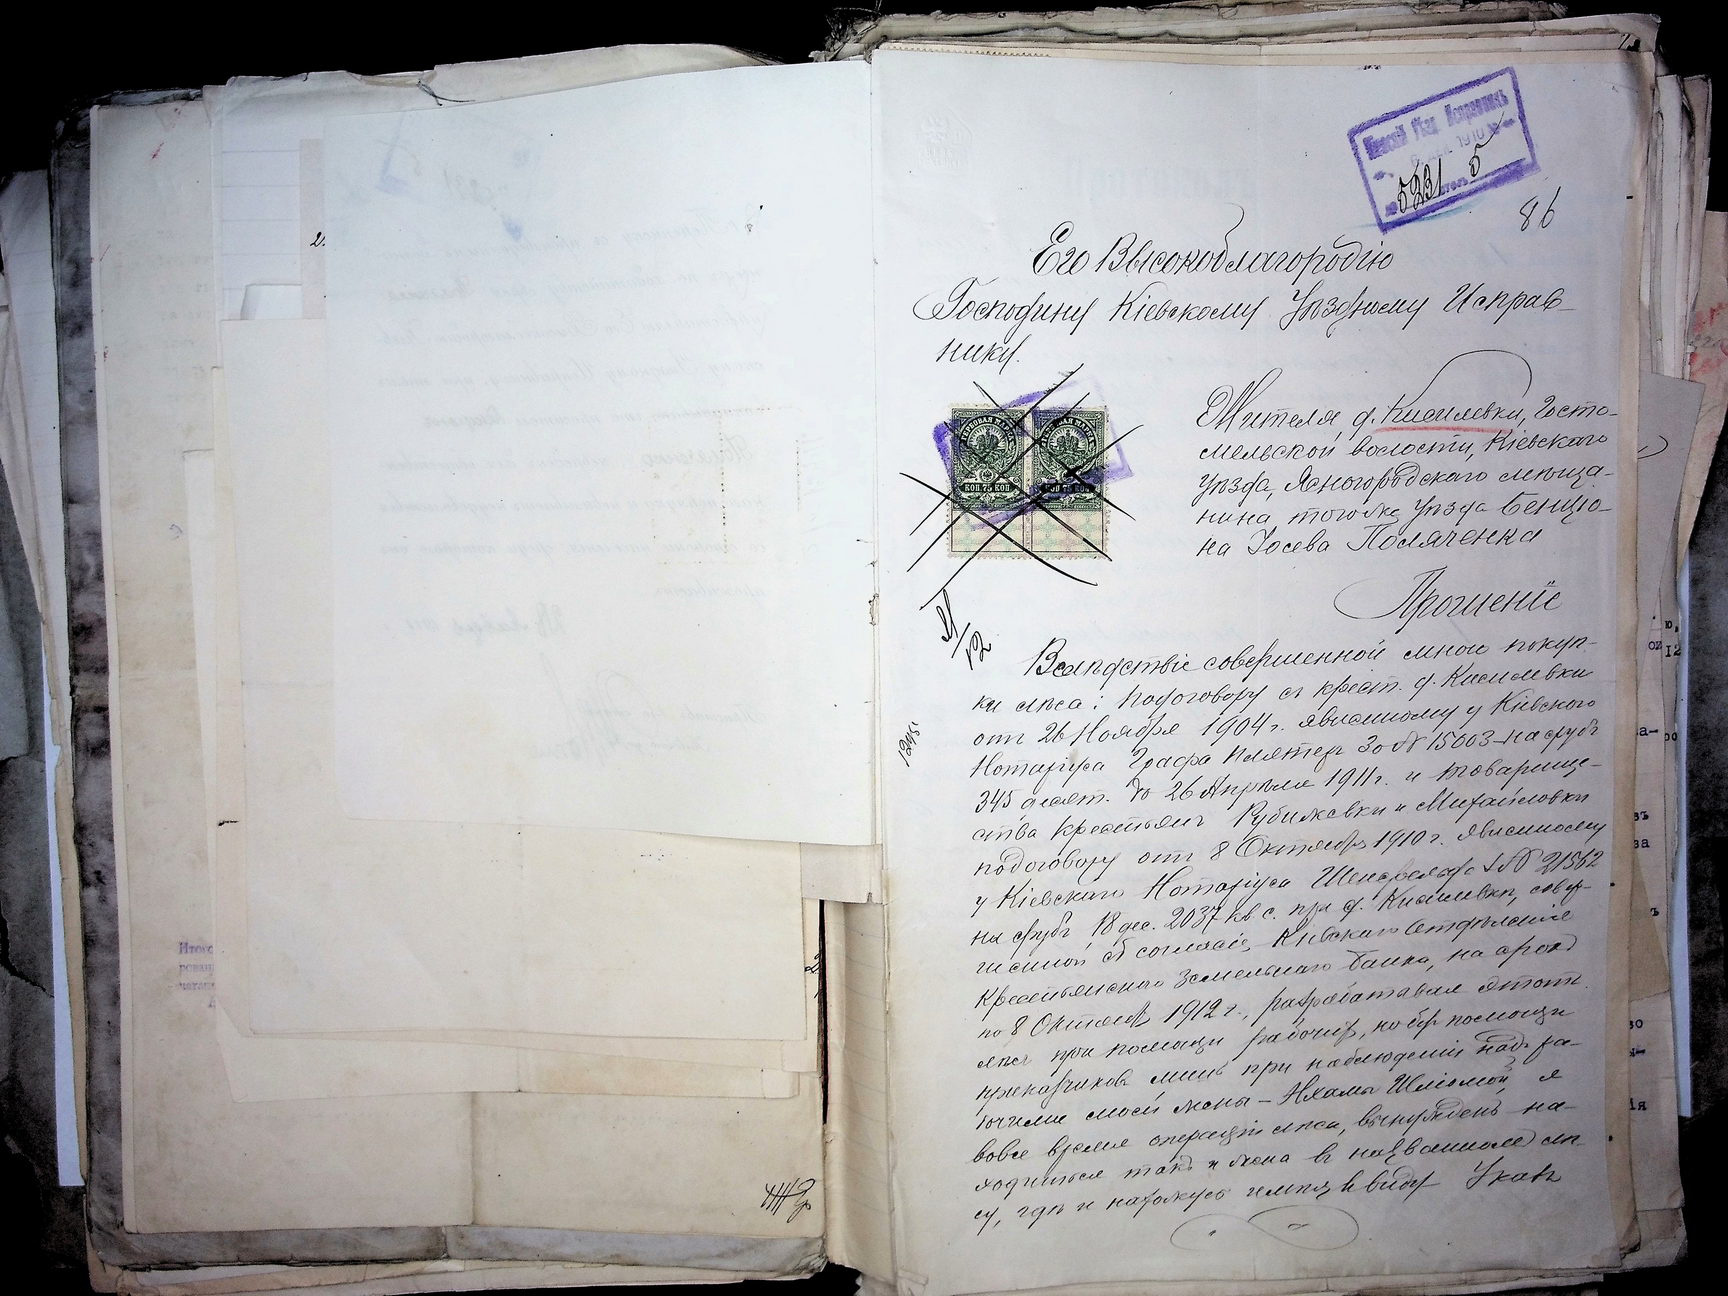 Кіевскій Уѣзд. Исправникъ
1910
№ 5231 столъ 5
86
Его Высокоблагородію
Господину Кіевскому Уѣздному Исправ-
нику.
Жителя д. Кисилевки, Госто-
мельской волости, Кіевскаго
уѣзда, Ясногородскаго мѣща-
нина тогоже уѣзда Бенціо-
на Іосева Поляченка
КОП. 75 КОП.
КОП. 75 КОП.
Прошеніе
Вслѣдствіе совершенной мною покуп-
ки лѣса: подоговору съ крест. д. Кисилевки
отъ 26 Ноября 1904 г. явленному у Кіевскаго
Нотаріуса Графа Плятеръ За № 15003 на срубъ
345 десят. до 26 Апрѣля 1911 г. и товарище-
ства крестьянъ Рубижовки и Михайловки
подоговору отъ 8 Октября 1910 г. явленному
у Кіевскаго Нотаріуса № 21562
на срубъ 18 дес. 2037 кв с. при д. Кисилевки,
съ согласіе Кіевскаго Отдѣленіе
Крестьянскаго Земельнаго банка, на срокъ
по 8 Октября 1912 г., разработавая этотъ
лѣсъ при помощи рабочихъ, но безъ помощи
приказчиковъ лишь при наблюденіи надъ ра-
бочими моей жены - я
вовсе время операціи лѣса, вынужденъ на-
ходиться такъ и жена въ названномъ лѣ-
су, гдѣ и нахожусь имѣя въ виду Указъ
1245
2.